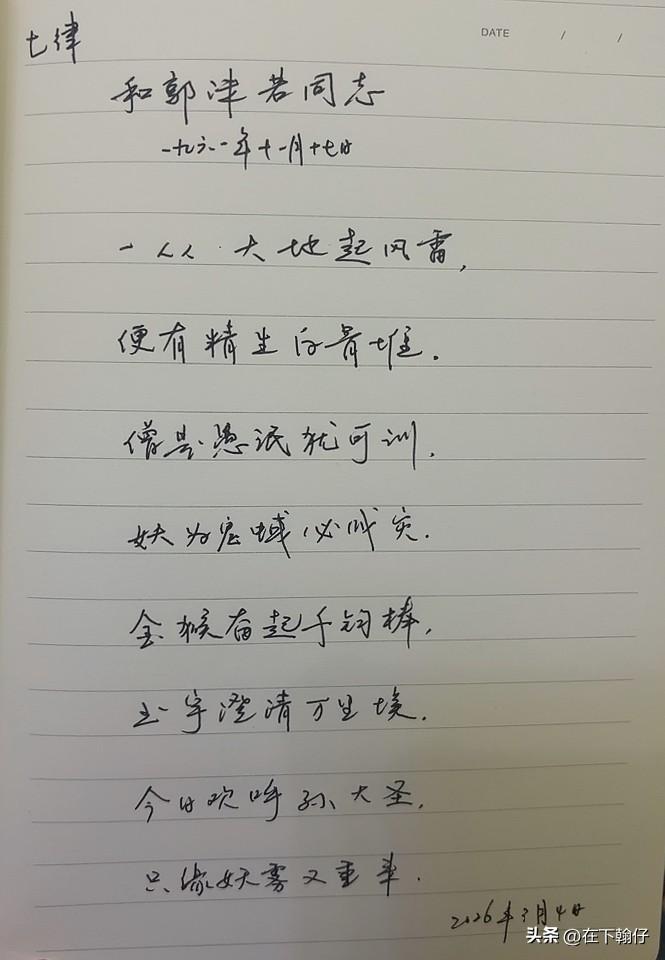 七律
DATE / /
和郭沫若同志
一九六一年十一月十七日
一从大地起风雷，
便有精生白骨堆．
僧是愚氓犹可训．
妖为鬼蜮必成灾．
金猴奋起千钧棒，
玉宇澄清万里埃．
今日欢呼孙大圣，
只缘妖雾又重来．
2026年3月4日
头条 @在下翰仔